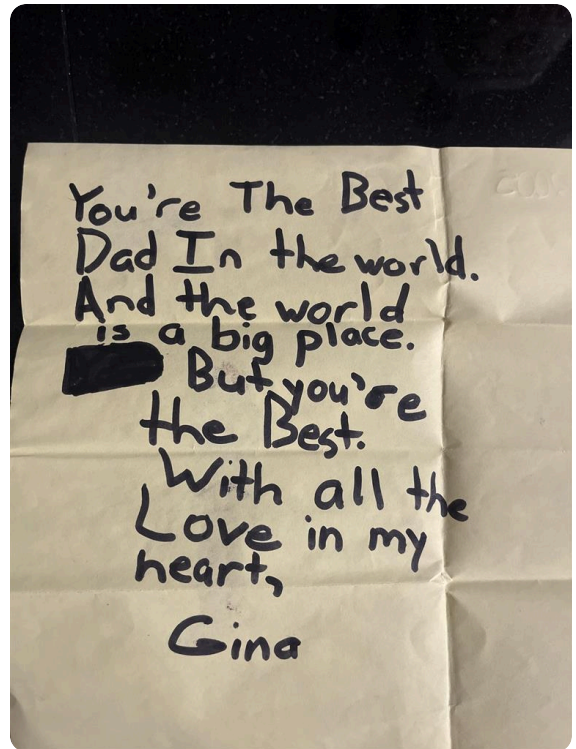 You're The Best
Dad In the world.
And the world
is a big place.
But you're
the Best.
With all the
Love in my
heart,
Gina